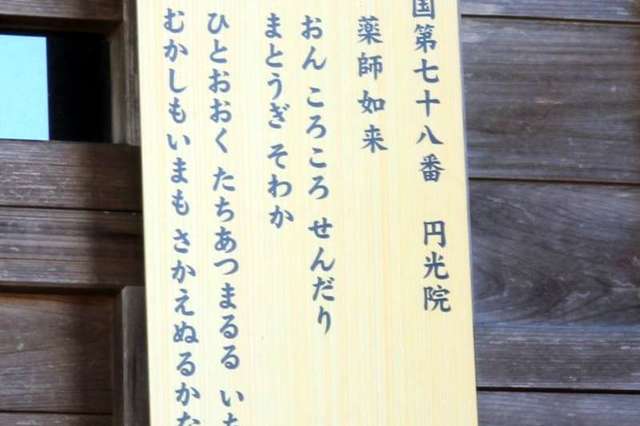 国第七十八番 円光院
薬師如来
おん ころころ せんだり
まとうぎ そわか
ひとおおく たちあつまるる いち
むかしもいまも さかえぬるかな